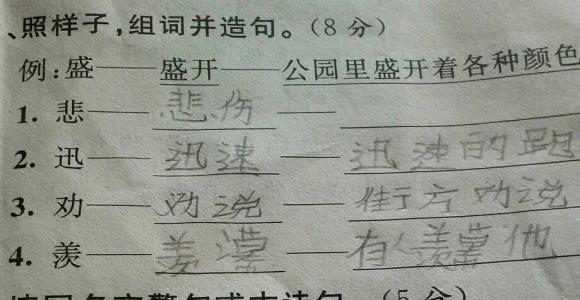 、照样子,组词并造句。(8分)
例:盛——盛开——公园里盛开着各种颜色
1. 悲——悲伤——
2. 迅——迅速——迅速的跑
3. 劝——劝说——方劝说
4. 羡——羡——有人羡他